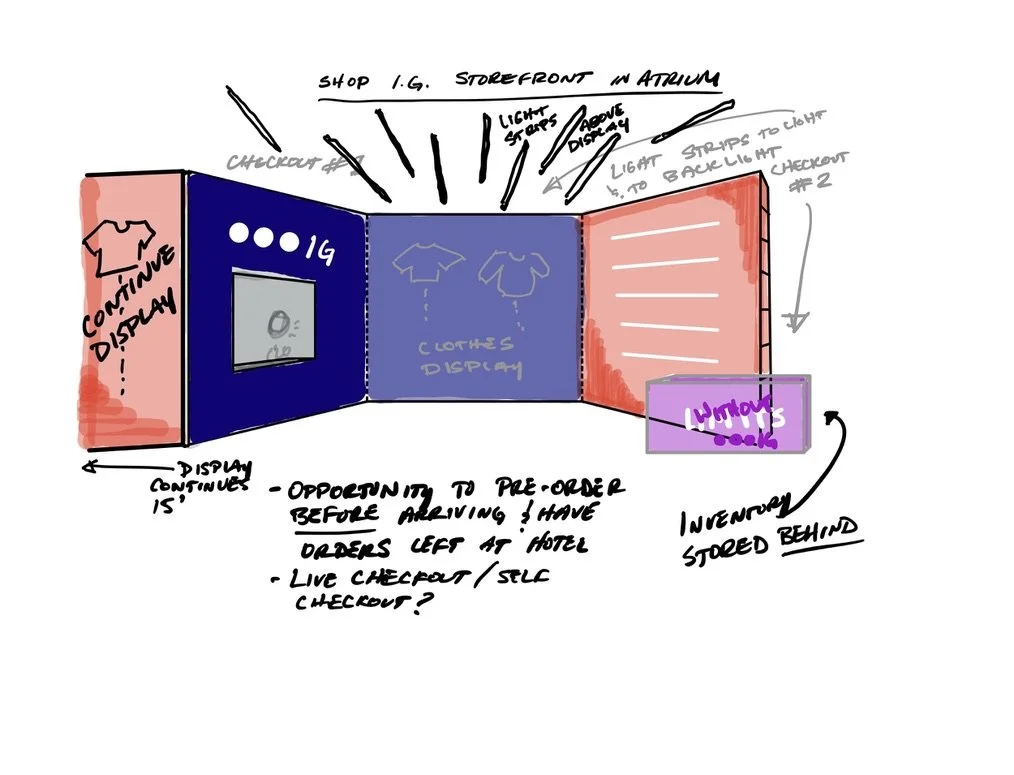 SHOP I.G. STOREFRONT IN ATRIUM
LIGHT
STRIPS
ABOVE
DISPLAY
LIGHT STRIPS TO LIGHT
& TO BACKLIGHT
CHECKOUT
#2
CHECKOUT #1
IG
CONTINUE
DISPLAY
CLOTHES
DISPLAY
WITHOUT
LIMITS
IG
DISPLAY
CONTINUES
15'
- OPPORTUNITY TO PRE-ORDER
BEFORE ARRIVING & HAVE
ORDERS LEFT AT HOTEL
- LIVE CHECKOUT / SELF
CHECKOUT?
INVENTORY
STORED BEHIND